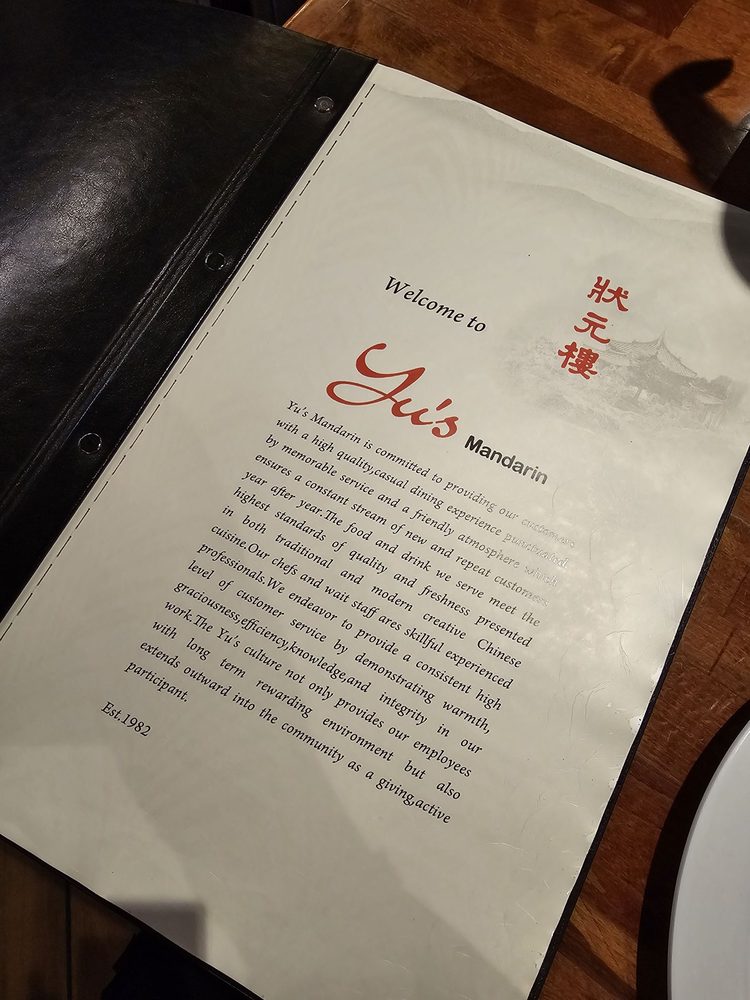 Welcome to
狀
元
樓
Yu's Mandarin
Yu's Mandarin is committed to providing our customers
with a high quality,casual dining experience punctuated
by memorable service and a friendly atmosphere which
ensures a constant stream of new and repeat customers
year after year.The food and drink we serve meet the
highest standards of quality and freshness presented
in both traditional and modern creative Chinese
cuisine.Our chefs and wait staff ares skillful experienced
professionals.We endeavor to provide a consistent high
level of customer service by demonstrating warmth,
graciousness,efficiency,knowledge,and integrity in our
work.The Yu's culture not only provides our employees
with long term rewarding environment but also
extends outward into the community as a giving,active
participant.
Est.1982